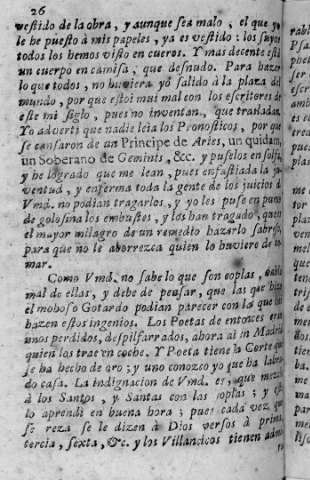 26
vestido de la obra, y aunque sea malo, el que yo
le he puesto à mis papeles, ya es vestido: los suyos
todos los hemos visto en cueros. Y mas decente està
un cuerpo en camisa, que desnudo. Para hazer
lo que todos, no huviera yo salido à la plaza del
mundo, por que estoi mui mal con los escritores de
este mi siglo, pues no inventan, que trasladan.
Yo adverti que nadie leia los Pronosticos, por que
se cansaron de un Principe de Aries, un quidam,
un Soberano de Geminis, &c. y puselos en solfa,
y he logrado que me lean, pues enfastiada la ju-
ventud, y enferma toda la gente de los juicios de
Vmd. no podian tragarlos, y yo les puse en punto
de golosina los embustes, y los han tragado, que es
el mayor milagro de un remedio hazerlo sabroso,
para que no le aborrezca quien lo huviere de to-
mar.
Como Vmd. no sabe lo que son coplas,
mal de ellas, y debe de pensar, que las que hizo
el mohoso Gotardo podian parecer con las que
hazen estos ingenios. Los Poetas de entonces eran
unos perdidos, despilfarrados, ahora ai in Madrid
quien los trae en coche. Y Poeta tiene la Corte que
se ha hecho de oro; y uno conozco yo que ha labra-
do casa. La indignacion de Vmd. es, que mezclo
à los Santos, y Santas con las coplas; y
lo aprendi en buena hora; pues cada vez que
se reza se le dizen à Dios versos à prima,
tercia, sexta, &c. y los Villancicos tienen